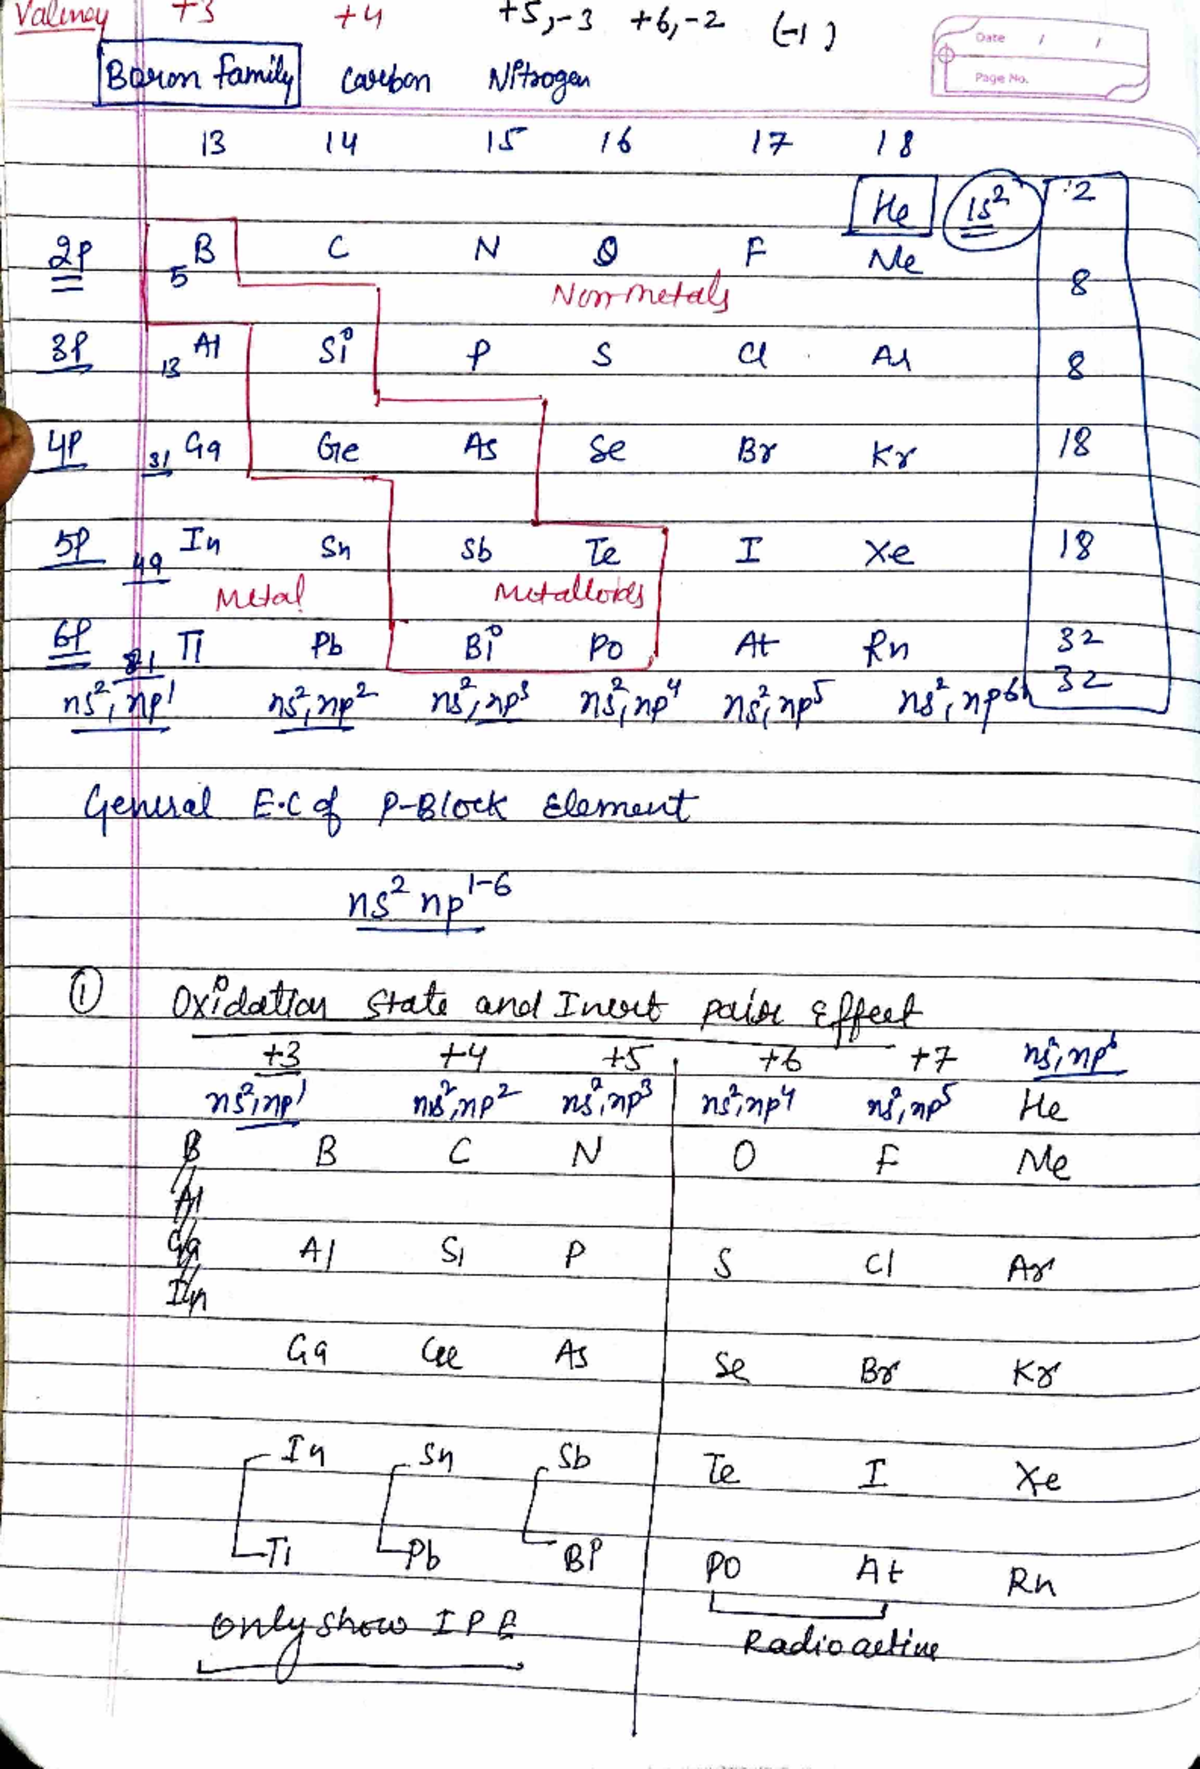 Valency +3 +4 +5,-3 +6,-2 (-1)
Date / /
Page No.
Boron family Carbon Nitrogen
13 14 15 16 17 18
He 1s² 2
2p 5 B C N O F Ne 8
Non metals
3p 13 Al Si P S Cl Ar 8
4p 31 Ga Ge As Se Br Kr 18
5p 49 In Sn Sb Te I Xe 18
Metal Metalloids
6p 81 Tl Pb Bi Po At Rn 32
ns², np¹ ns², np² ns², np³ ns², np⁴ ns², np⁵ ns², np⁶ 32
General E.C of P-Block Element
ns² np¹⁻⁶
① Oxidation State and Inert pair Effect
+3 +4 +5 +6 +7 ns², np⁶
ns², np¹ ns², np² ns², np³ ns², np⁴ ns², np⁵ He
B B C N O F Ne
Al
Ga Al Si P S Cl Ar
In
Ga Ge As Se Br Kr
In Sn Sb Te I Xe
Ti Pb Bi Po At Rn
Only show I P E Radioactive